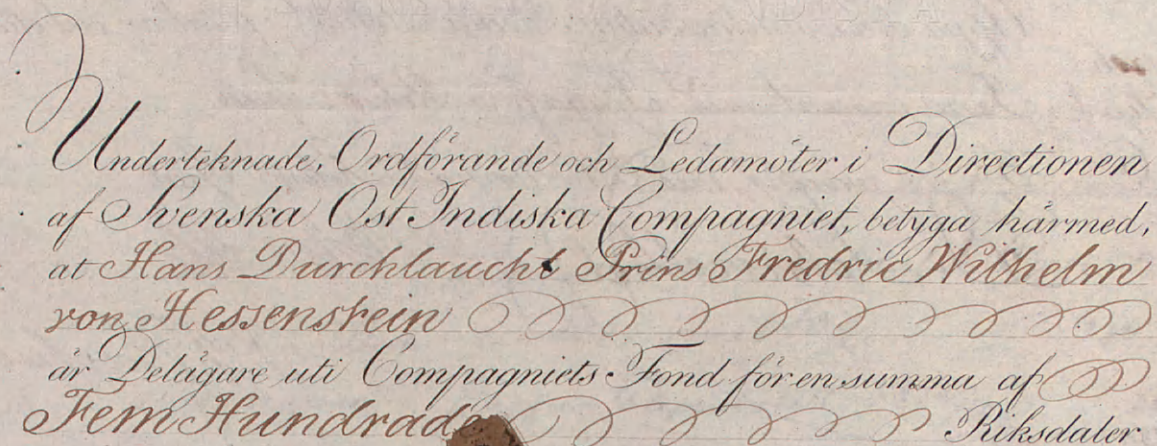 Underteknade, Ordförande och Ledamöter i Directionen
af Svenska Ost Indiska Compagniet, betyga härmed,
at Hans Durchlaucht Prins Fredric Wilhelm
von Hessenstein
är Delägare uti Compagniets Fond för en summa af
Fem Hundrade Riksdaler